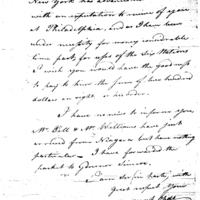 New York has advanced
with an expectation to receive it again
at Philadelphia, and as I have been
under necessity for money considerable
time past for use of the Six Nations
I wish you would have the goodness
to pay to him the sum of two hundred
dollars on sight, or under.
I have nothing to inform you,
Mr. Bull & Mr. Williams have just
arrived from Niagara but have nothing
particular. I have forwarded the
packet to Governor Simcoe.
I am Sir (in haste) with
great respect, Your